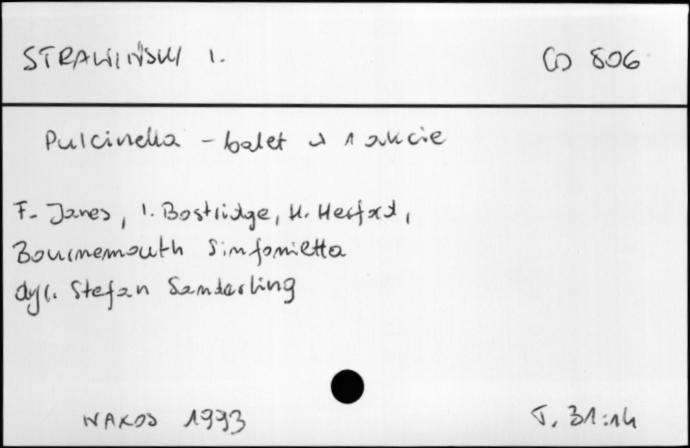 STRAWIŃSKI I. CD 806
Pulcinella - balet w 1 akcie
F. Janes, I. Bostridge, H. Herford,
Bournemouth Sinfonietta
dyr. Stefan Sanderling
NAXOS 1993 T. 31:14